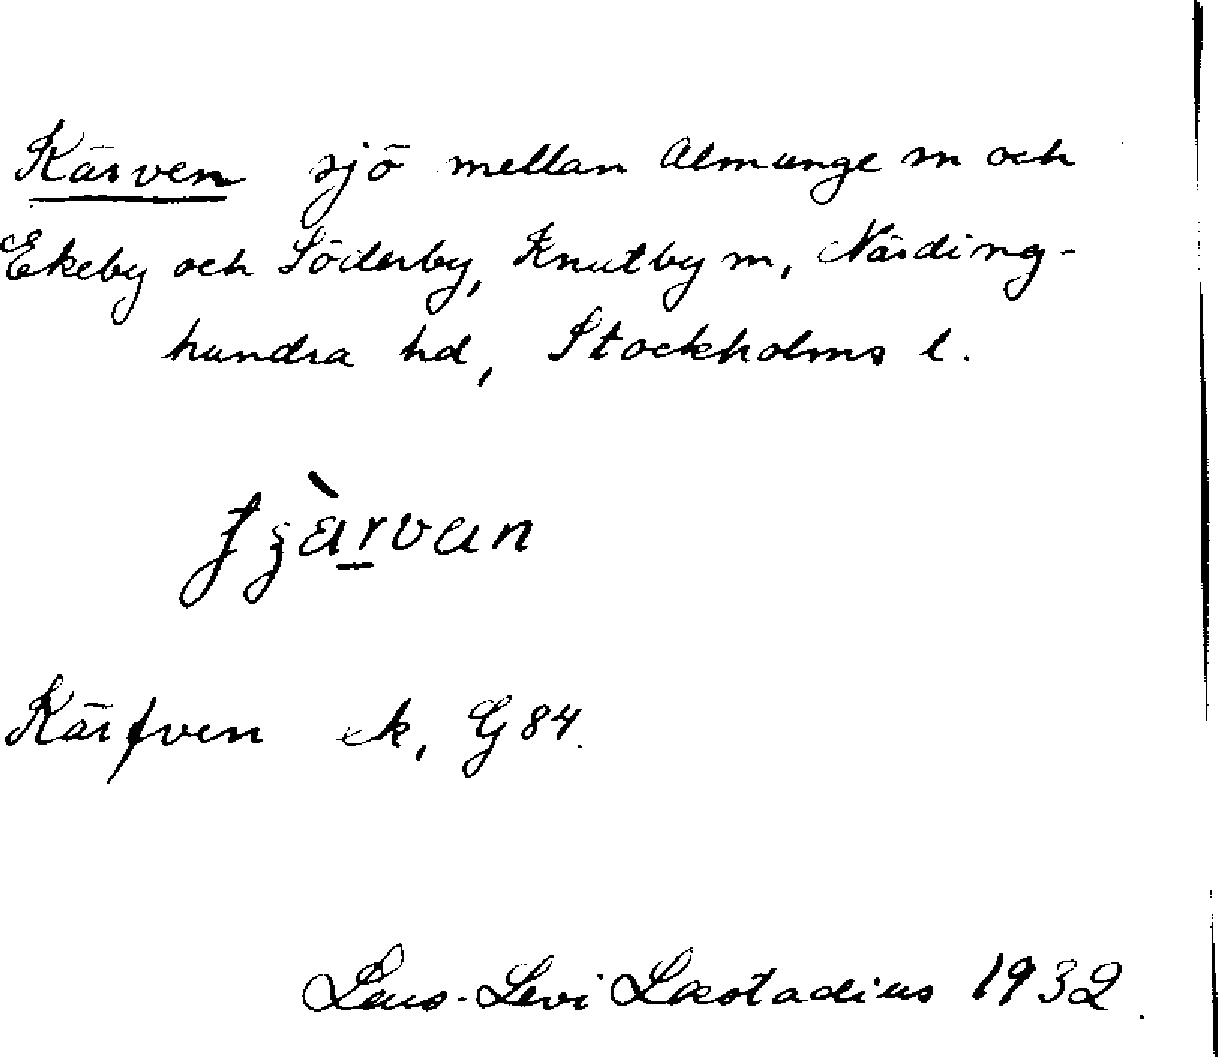 Kärven sjö mellan Almunge sn och
Ekeby och Söderby, Knutby sn, Närding-
hundra hd, Stockholms l.
Kärfven ek, G 84.
Lars-Levi Læstadius 1932.